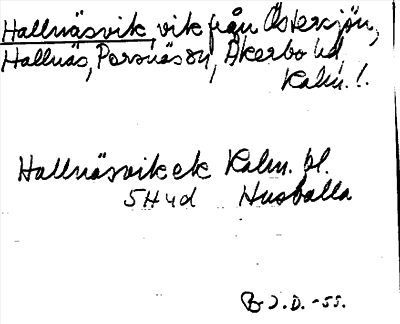 Hallnäsvik, vik från Östersjön,
Hallnäs, Persnäs sn, Åkerbo hd,
Kalm. l.
Hallnäsvik ek Kalm. bl.
5H yd Husvalla
2. D. -55.